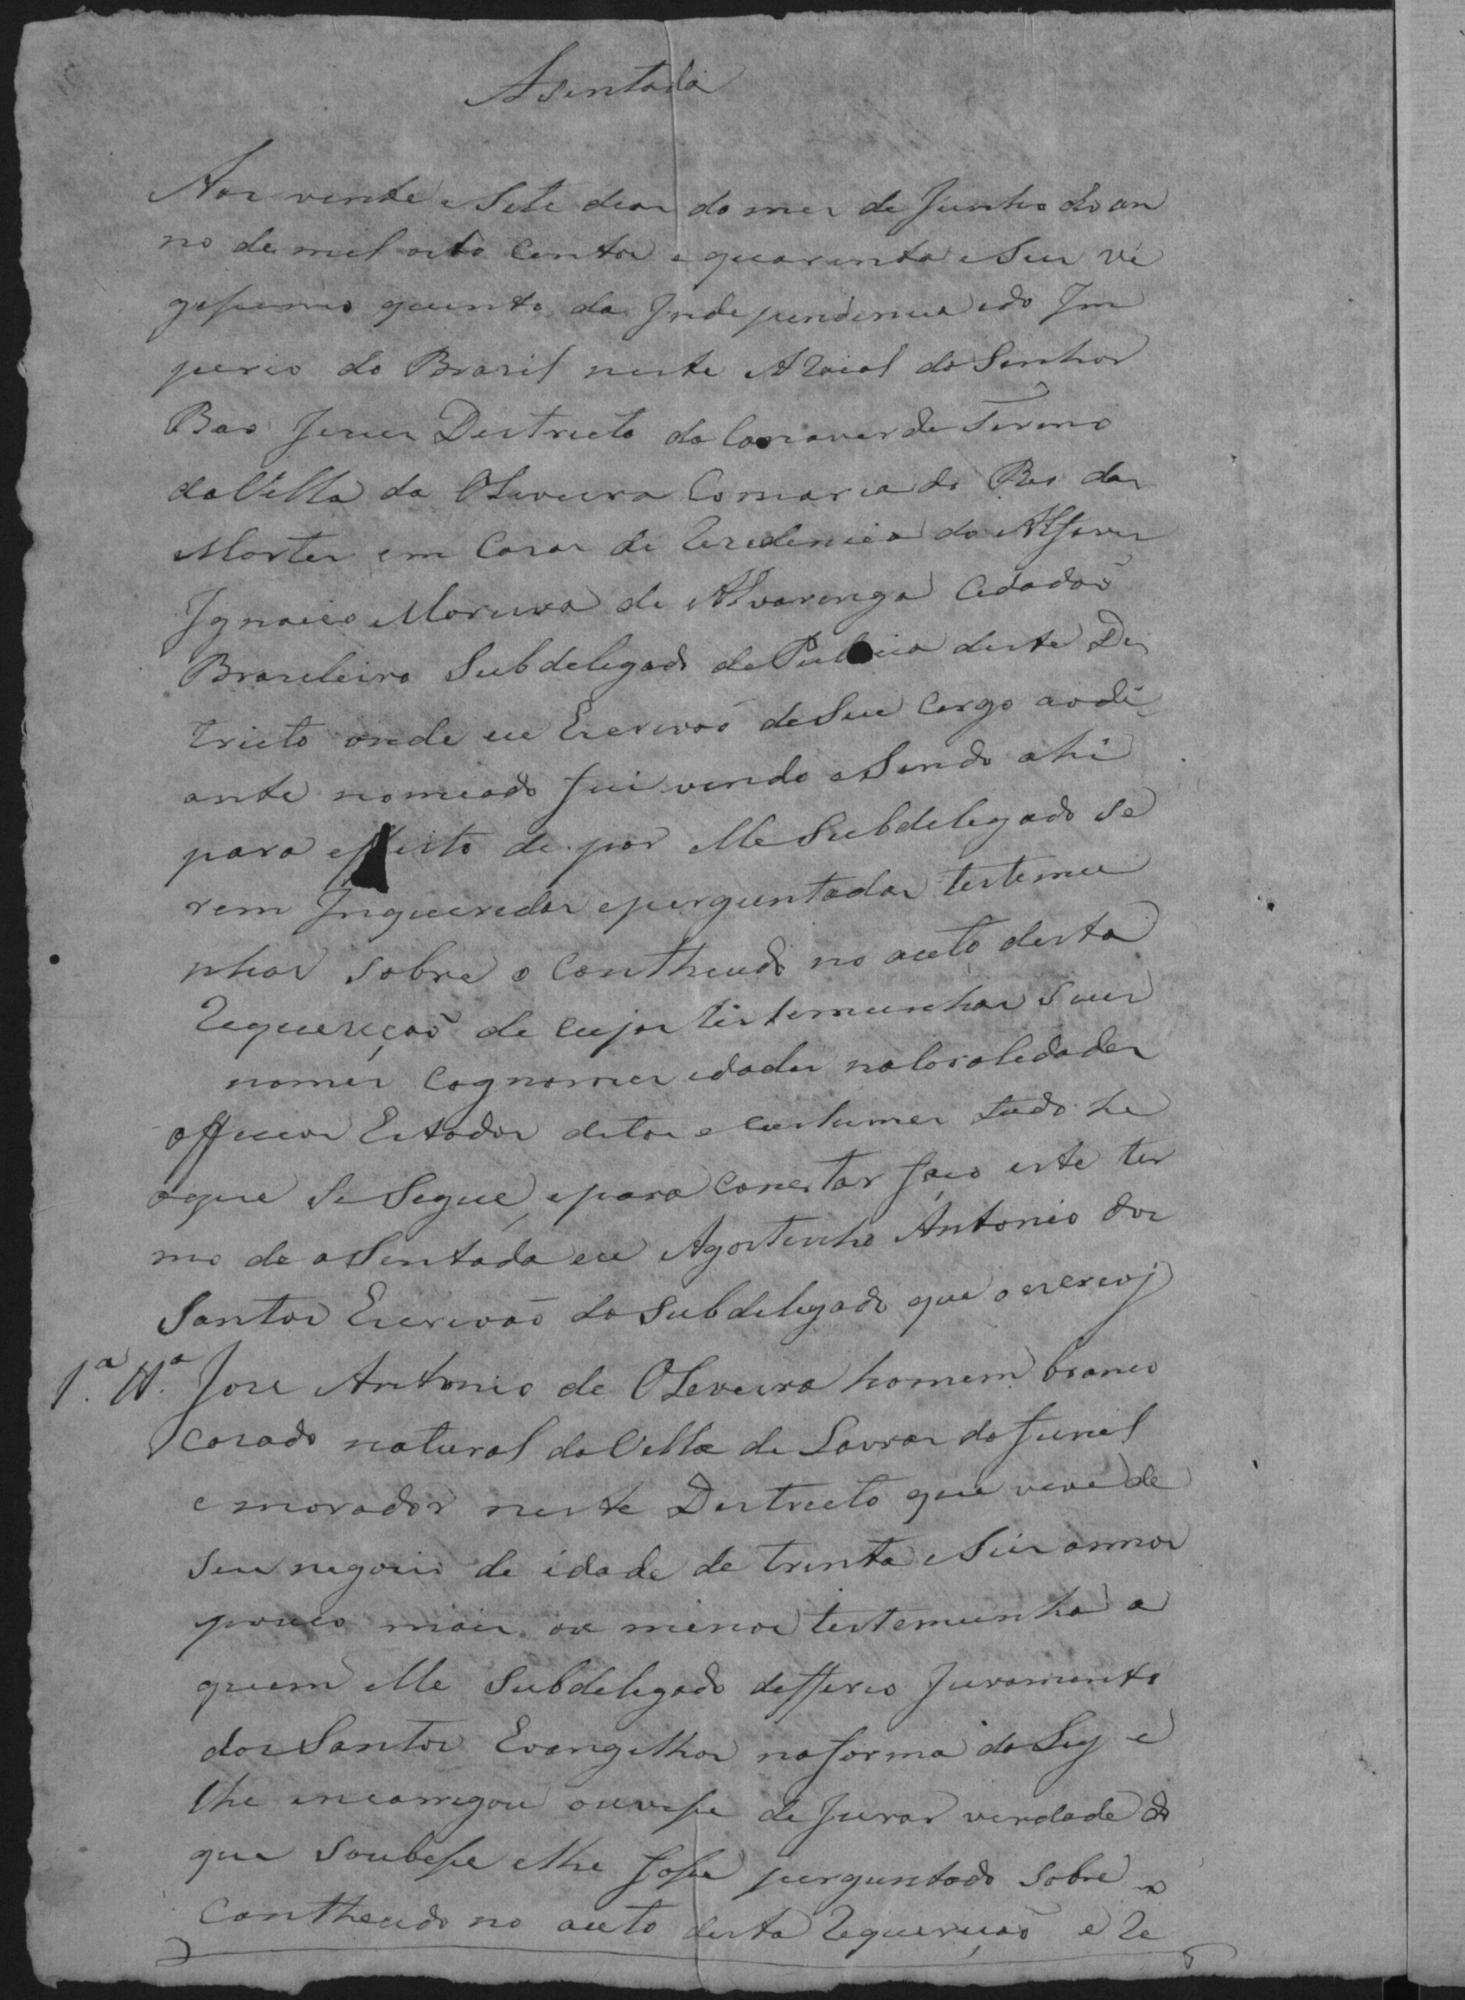 Asentada
Aos vinte e Sete dias do mes de Junho do an
no de mil oito centos e quarenta e Seis vi
gessimo quinto da Independencia e do Im
perio do Brazil neste ARaial do Senhor
Bao Jezus Destricto da Canaverde Termo
da Villa da Oliveira Comarca do Rio das
Mortes em Cazas de Rezidencia do Alferes
Ignacio Moreira de Alvarenga Cidadaõ
Brazileiro Subdelegado de Pulicia deste Dis
tricto onde eu Escrivaõ de Seu Cargo aodi
ante nomeado fui vindo e Sendo ahi
para effeito de por elle Subdelegado se
rem Inqueridas e perguntadas testemu
nhas sobre o Contheudo no auto desta
Requeziçaõ de cujas testemunhas seus
nomes Cognomes idades naturalidades
officios Estados ditos e custumes tudo he
oque se Segue, e para constar faço este ter
mo de aSentada eu Agostinho Antonio dos
Santos Escrivaõ do Subdelegado que o escrevy
1.ª Tt.ª Joze Antonio de Oliveira homem branco
cazado natural da Villa de Lavras do Funil
e morador neste Destricto que vive de
seu negocio de idade de trinta e Seis annos
pouco mais ou menos testemunha a
quem elle Subdelegado defferio Juramento
dos Santos Evangelhos na forma da Ley e
lhe encarregou ouvesse de Jurar verdade do
que soubesse e lhe fosse perguntado sobre o
Contheudo no auto desta Requeziçaõ e Re